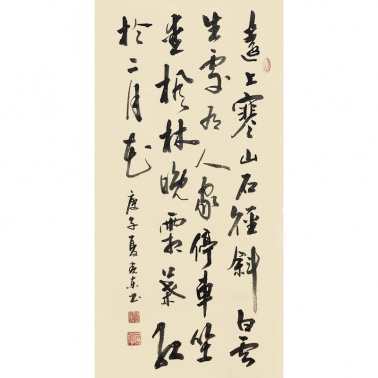 遠上寒山石徑斜白雲
生處有人家停車坐
愛楓林晚霜葉紅
於二月花
庚子夏